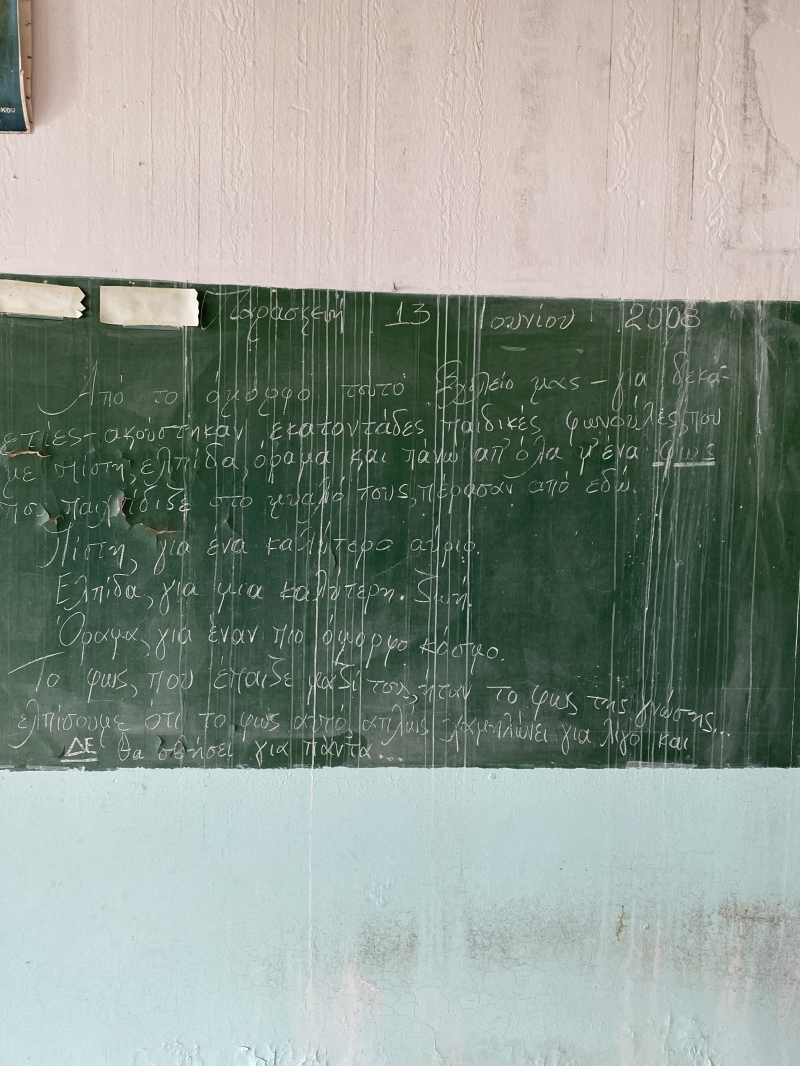 ΚΟΥ
Παρασκευή 13 Ιουνίου 2008
Από το όμορφο τούτο Σχολείο μας - για δεκα-
ετίες - ακούστηκαν εκατοντάδες παιδικές φωνούλες, που
με πίστη, ελπίδα, όραμα και πάνω απ' όλα μ' ένα φως
που παιχνίδιζε στο μυαλό τους, πέρασαν από εδώ.
Πίστη, για ένα καλύτερο αύριο.
Ελπίδα, για μια καλύτερη ζωή.
Όραμα, για έναν πιο όμορφο κόσμο.
Το φως, που έπαιζε μαζί τους, ήταν το φως της γνώσης...
ελπίσουμε ότι το φως αυτό απλώς χαμηλώνει για λίγο και
ΔΕ θα σβήσει για πάντα...